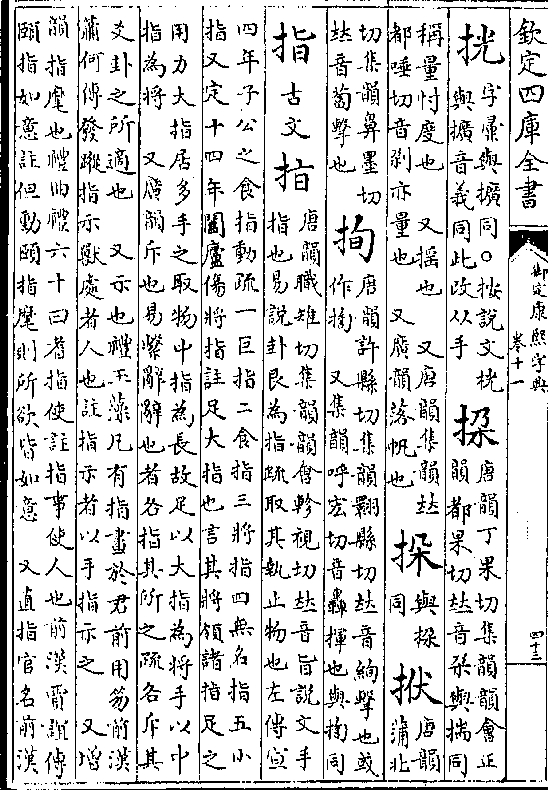 欽定四庫全書
御定康熙字典
卷十一
四十三
挄 字彙與擴同○按說文桄與擴音義同此改从手 挅 唐韻丁果切集韻韻會正韻都果切𠀤音朶與揣同
稱量忖度也 又搖也 又唐韻集韻𠀤都唾切音剁亦量也 又廣韻落帆也 挆 與挅同 唐韻蒲北
切集韻鼻墨切𠀤音匐擊也 㧦 唐韻許縣切集韻翾縣切𠀤音絢擊也或作揈 又集韻呼宏切音轟揮也與揈同
指 古文 唐韻職雉切集韻韻會軫視切𠀤音旨說文手指也易說卦艮為指疏取其執止物也左傳宣
四年子公之食指動疏一巨指二食指三將指四無名指五小
指又定十四年闔廬傷將指註足大指也言其將領諸指足之
用力大指居多手之取物中指為長故足以大指為將手以中
指為將 又廣韻斥也易繫辭辭也者各指其所之疏各斥其
爻卦之所適也 又示也禮玉藻凡有指畫於君前用笏前漢
蕭何傳發蹤指示獸處者人也註指示者以手指示之 又增
韻指麾也禮曲禮六十曰耆指使註指事使人也前漢賈誼傳
頤指如意註但動頤指麾則所欲皆如意 又直指官名前漢